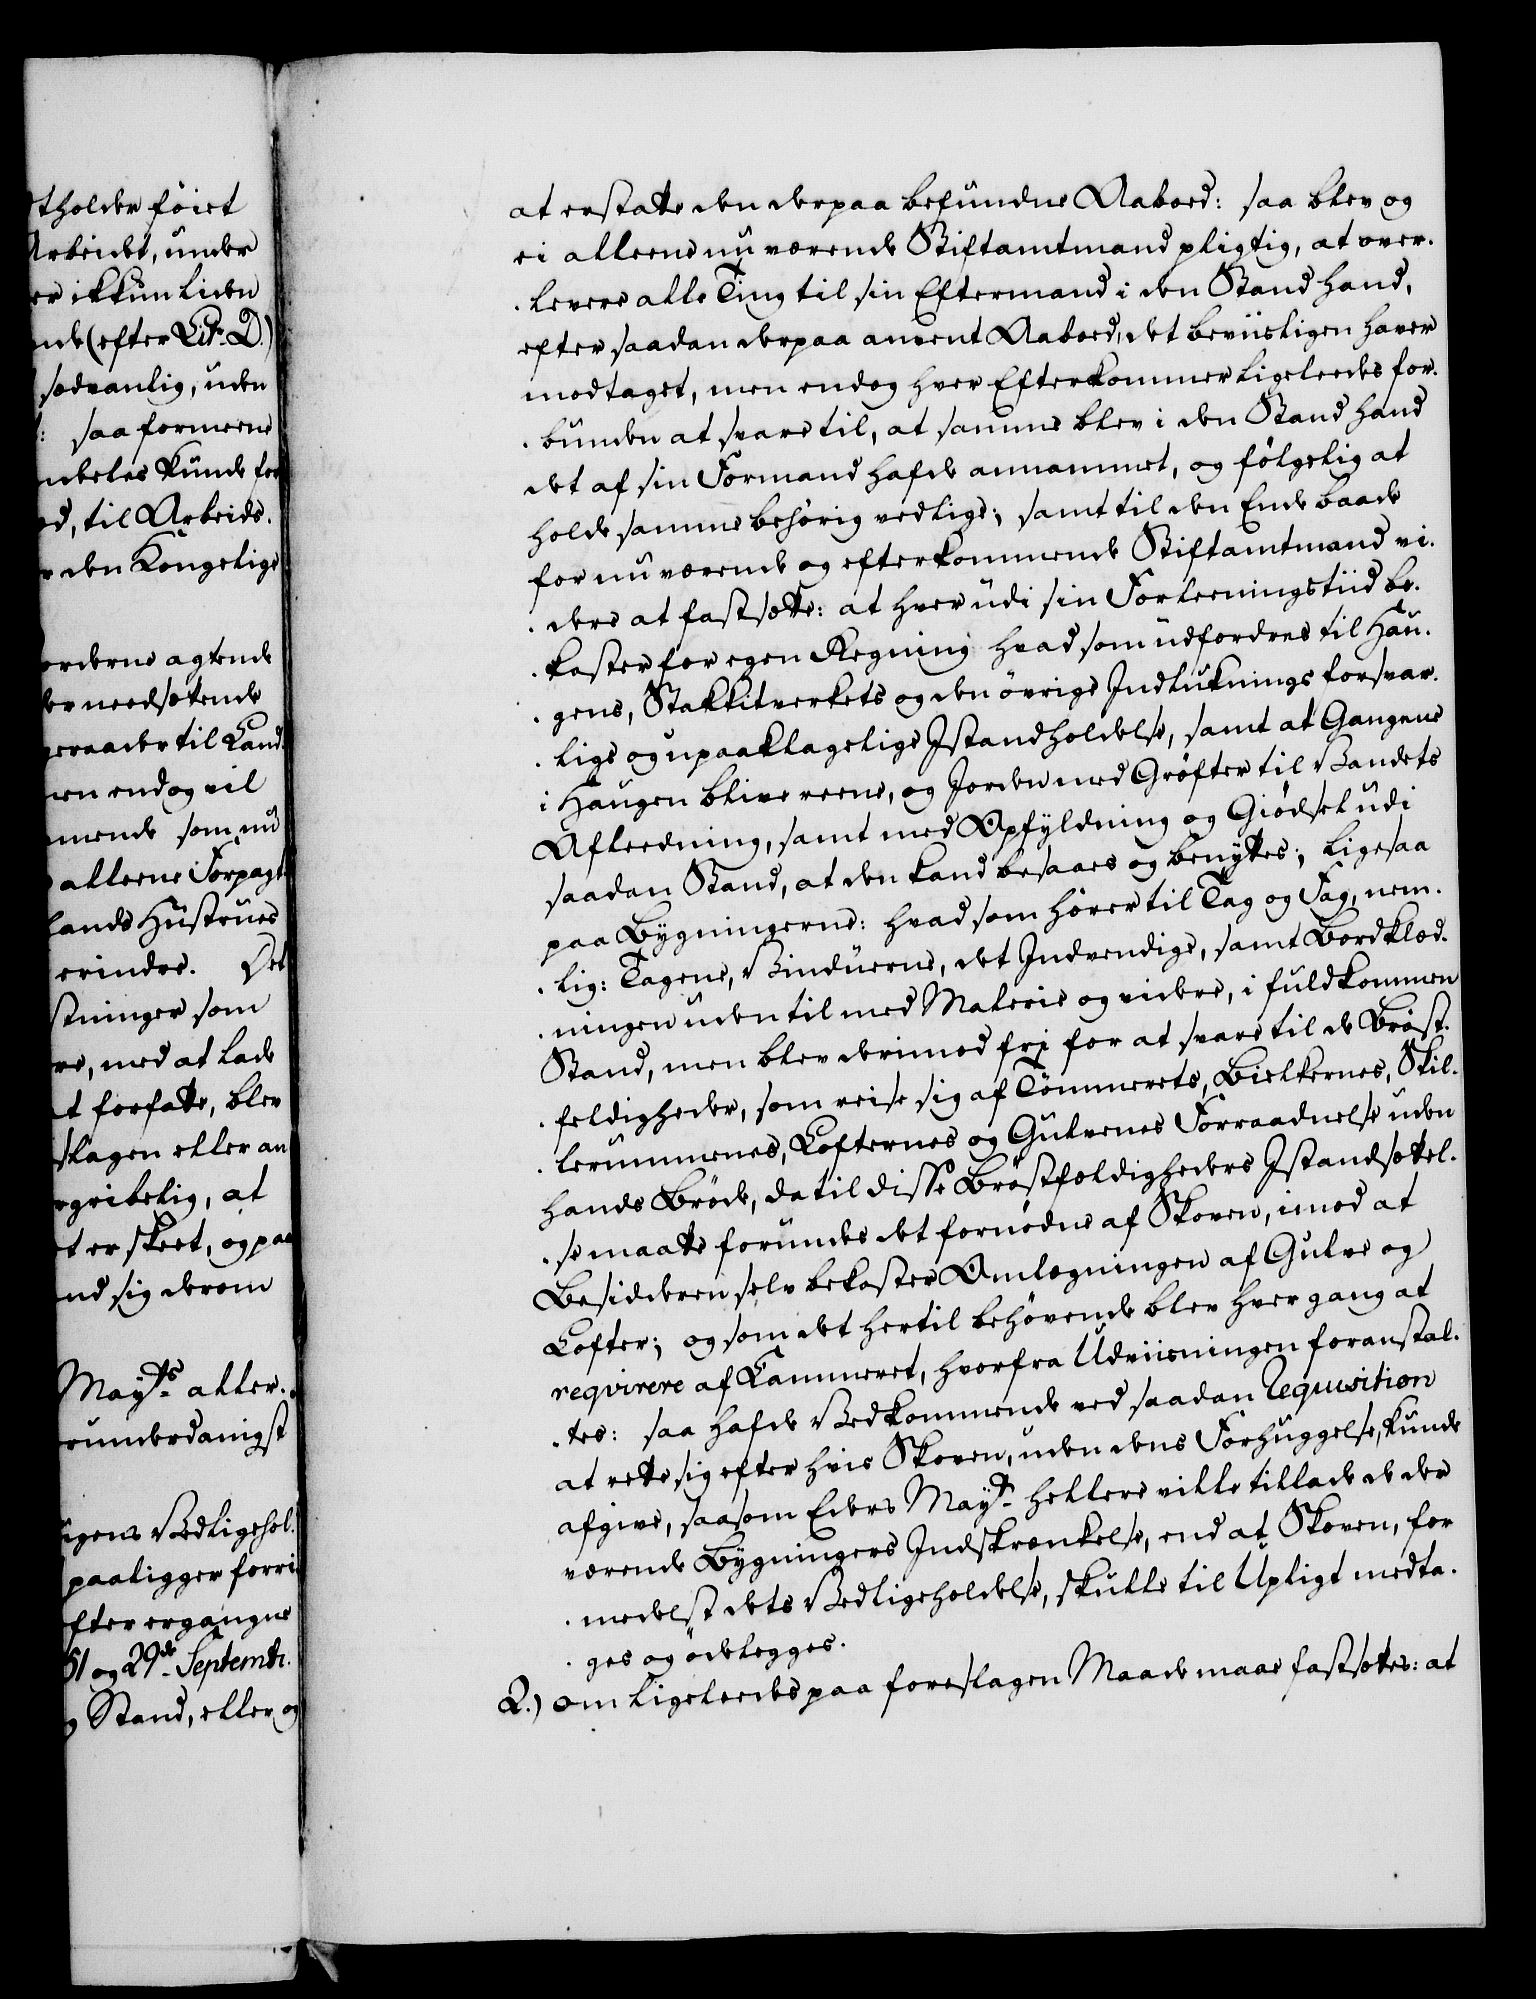 tholder föiet
Arbeidet, under
er ikkun liden
nde (efter Litr. D.)
sædvanlig, uden
: saa formeene
ndeles kunde for
ed, til Arbeids.
r den Kongelige
orderne agtende
der needsættende
geraader til Land.
men endog vil
mmende som nu
alleene Forpagt.
lands Hustrues
erindre. Det
stninger som
re, med at lade
t forfatte, blev
slagen eller an
rgribelig, at
t er skeet, og paa
nd sig derom
Mayts. aller.
runderdanigst
igens Vedligehol.
paaligger forri
fter ergangne
51 og 29de Septembr.
g Stand, eller og
at erstatte den derpaa befundne Aaboed: saa blev og
ei alleene nu værende Stiftamtmand pligtig, at over.
. levere alle Ting til sin Eftermand i den Stand hand,
efter saadan derpaa anvent Aaboed, det beviisligen haver
modtaget, men endog hver Efterkommer ligeleedes for.
. bunden at svare til, at samme blev i den Stand hand
det af sin Formand hafde annammet, og følgelig at
holde samme behörig vedlige; samt til den Ende baade
for nu værende og efterkommende Stiftamtmand vi.
. dere at fastsætte: at hver udi sin Forleeningstiid be.
. koster for egen Regning hvad som udfordres til Hau.
. gens, Stakkitverkets og den övrige Indluknings forsvar.
. lige og upaaklagelige Istandholdelse, samt at Gangene
i Haugen blive reene, og Jorden med Gröfter til Vandets
Afleedning, samt med Opfyldning og Giödsel udi
saadan Stand, at den kand besaaes og benyttes; ligesaa
paa Bygningerne: hvad som hörer til Tag og Fag, nem.
. lig: Tagene, Vinduerne, det Indvendige, samt Bordklæd.
. ningen uden til med Malerie og videre, i fuldkommen
Stand, men blev derimod fri for at svare til de Bröst.
. feldigheder, som reise sig af Tömmerets, Bielkernes, Skil.
. lerummenes, Lofternes og Gulvenes Forraadnelse uden
hands Bröde, da til disse Bröstfældigheders Istandsættel.
. se maatte forundes det fornödne af Skoven, imod at
Besidderen selv bekoster Omlægningen af Gulve og
Lofter; og som det hertil behövende blev hver gang at
reqvirere af Cammeret, hvorfra Udviisningen foranstal.
. tes: saa hafde Vedkommende ved saadan Requisition
at rette sig efter hvis Skoven, uden dens Forhuggelse, kunde
afgive, saasom Eders Mayt. hellere ville tillade de der
værende Bygningers Indskrænkelse, end at Skoven, for
. medelst dets Vedligeholdelse, skulle til Upligt medta.
. ges og ödelegges.
2.) om ligeleedes paa foreslagen Maade maae fastsættes: at